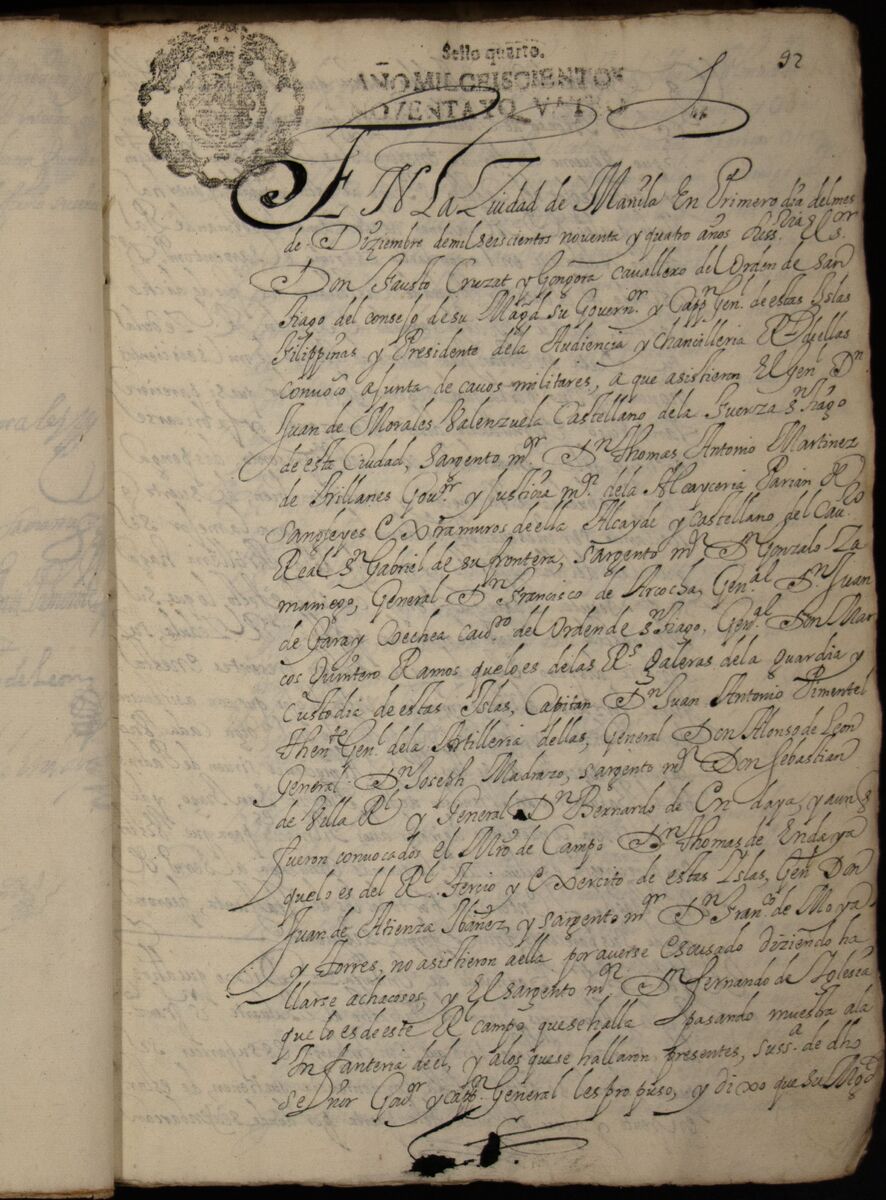 92
Sello quarto.
AÑO MIL SEISCIENTOS
NOVENTA Y QVATRO
EN La Ziudad de Manila En Primero dia del mes
de Diziembre de mil seiscientos noventa y quatro años el sr
Don Fausto Cruzat y Gongora cavallero del Orden de San
tiago del consejo de su Magd su Governor y Cappn Genl de estas Islas
Filippinas y Presidente dela Audiencia y chancilleria Rl de ellas
convoco a junta de cavos militares, a que asistieron El Genl Dn
Juan de Morales Valenzuela Castellano dela fuerza sn tiago
de esta Ciudad, Sargento mor Dn Thomas Antonio Martinez
de Trillanes Govor y Justicia mor dela Alcayceria Parian de
Sangleyes Extramuros de ella Alcayde y castellano del Cavo
Real sn Gabriel de su frontera, sargento mor Dn Gonzalo Za
maniego, General Dn Francisco de Arcocha, Genal Dn Juan
de Garay Cochea cavo del Orden de sn tiago, Genal Don Mar
cos Quintero Ramos que lo es delas Rs galeras dela guardia y
Custodia de estas Islas, Capitan Dn Juan Antonio Pimentel
Thente Genl dela Artilleria dellas, General Don Alonso de Leon
General Dn Joseph Madrazo, sargento mor Don Sebastian
de Villa Rl y General Dn Bernardo de Endaya, y aunq
fueron convocados el Mro de Campo Dn Thomas de Endaya
que lo es del Rl Tercio y Exercito de estas Islas, Genl Don
Juan de Atienza Ibañez, y sargento mor Dn Franco de Moya
y Torres, no asistieron aella por averse escusado diziendo ha
llarse achacosos, y El sargento mor Dn fernando de Iglesia
que lo es de este Rl campo, que se halla pasando muestra ala
Infanteria del, y alos que se hallaron presentes, suss.a de dho
Señor Govor y cappn General les propuso, y dixo que su Magd